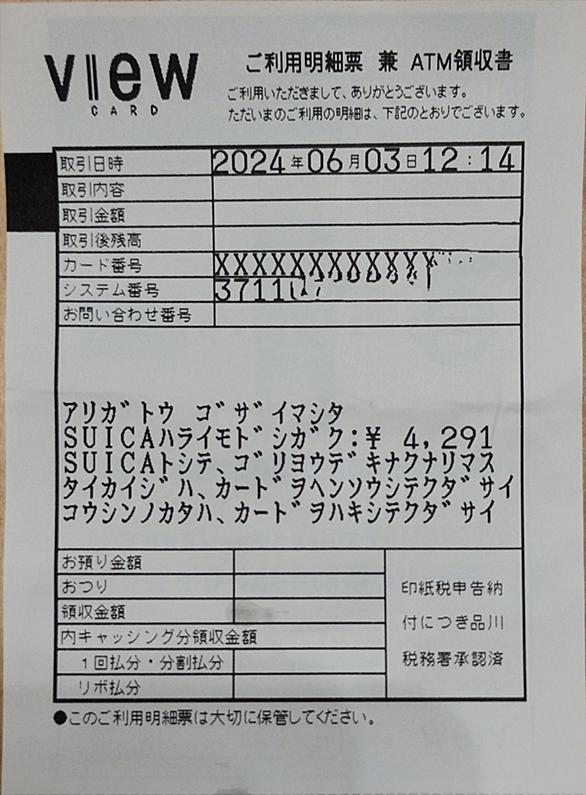 VIEW
CARD
ご利用明細票 兼 ATM領収書
ご利用いただきまして、ありがとうございます。
ただいまのご利用の明細は、下記のとおりでございます。
取引日時 2024年06月03日12:14
取引内容
取引金額
取引後残高
カード番号 XXXXXXXXXXXX
システム番号 3711
お問い合わせ番号
アリガトウ ゴザイマシタ
SUICAハライモドシガク:¥ 4,291
SUICAトシテ、ゴリヨウデキナクナリマス
タイカイジハ、カードヲヘンソウシテクダサイ
コウシンノカタハ、カードヲハキシテクダサイ
お預り金額
おつり
領収金額
内キャッシング分領収金額
1回払分・分割払分
リボ払分
印紙税申告納
付につき品川
税務署承認済
●このご利用明細票は大切に保管してください。